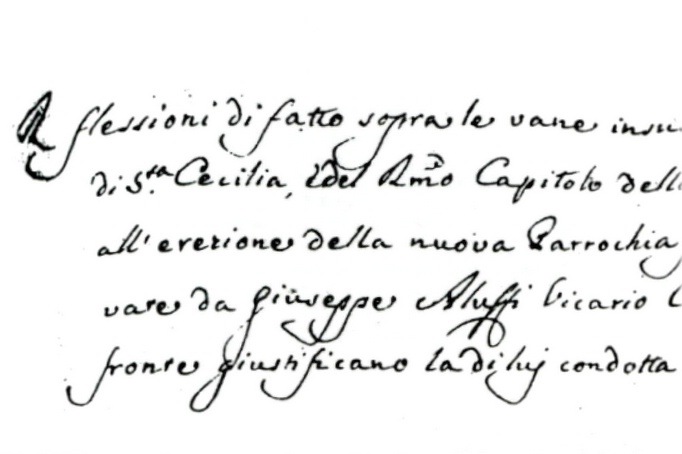 Riflessioni di fatto sopra le vane insu
di S.ta Cecilia, e del Rmo Capitolo dell
all' erezione della nuova Parrochia
vate da Giuseppe Aluffi Vicario C
fronte giustificano la di luj condotta